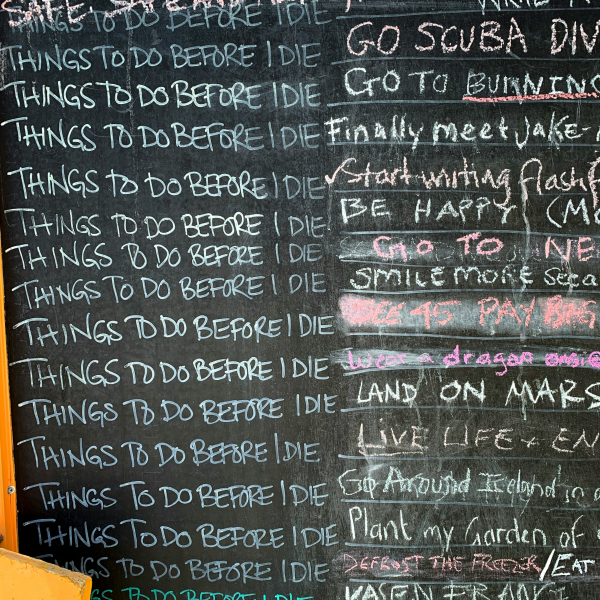 THINGS TO DO BEFORE I DIE
THINGS TO DO BEFORE I DIE GO SCUBA DIV
THINGS TO DO BEFORE I DIE GO TO BURNING
THINGS TO DO BEFORE I DIE Finally meet Jake
THINGS TO DO BEFORE I DIE Start writing flash
THINGS TO DO BEFORE I DIE BE HAPPY (MO
THINGS TO DO BEFORE I DIE GO TO NE
THINGS TO DO BEFORE I DIE SMILE MORE
THINGS TO DO BEFORE I DIE SEE 45 PAY
THINGS TO DO BEFORE I DIE Wear a dragon onsie
THINGS TO DO BEFORE I DIE LAND ON MARS
THINGS TO DO BEFORE I DIE LIVE LIFE + EN
THINGS TO DO BEFORE I DIE Go Around Ireland in a
THINGS TO DO BEFORE I DIE Plant my Garden of
THINGS TO DO BEFORE I DIE DEFROST THE FREEZER/EAT
THINGS TO DO BEFORE I DIE